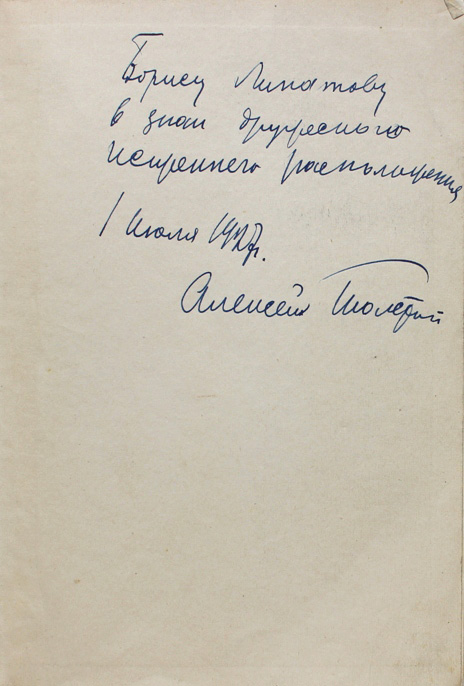 Борису Липатову
в знак дружеского
искреннего расположения
1 Июля 1927 г.
Алексей Толстой